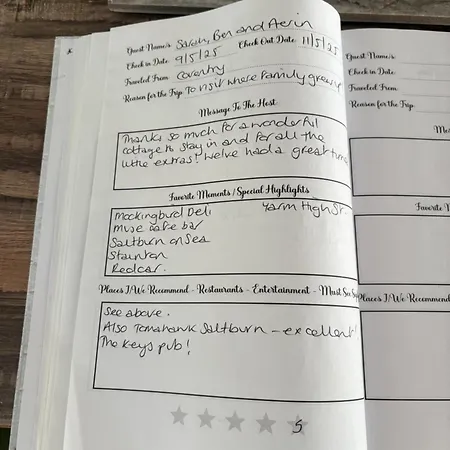 Guest Name/s Sarah, Ben and Aerin
Check in Date 9/5/25 Check Out Date 11/5/25
Traveled From Coventry
Reason for the Trip To visit where family grew up
Message To The Host
Thanks so much for a wonderful
cottage to stay in and for all the
little extras! We've had a great time
Favorite Moments / Special Highlights
Mockingbird Deli Yarm High St.
Muse cafe bar
Saltburn on Sea
Stainton
Redcar.
Places I/We Recommend - Restaurants - Entertainment - Must See Sp
See above.
Also Tomahawk Saltburn - excellent!
The Keys pub!
5
Guest Name/s
Check in Date
Traveled From
Reason for the Trip
Me
Favorite M
Places I/We Recommend